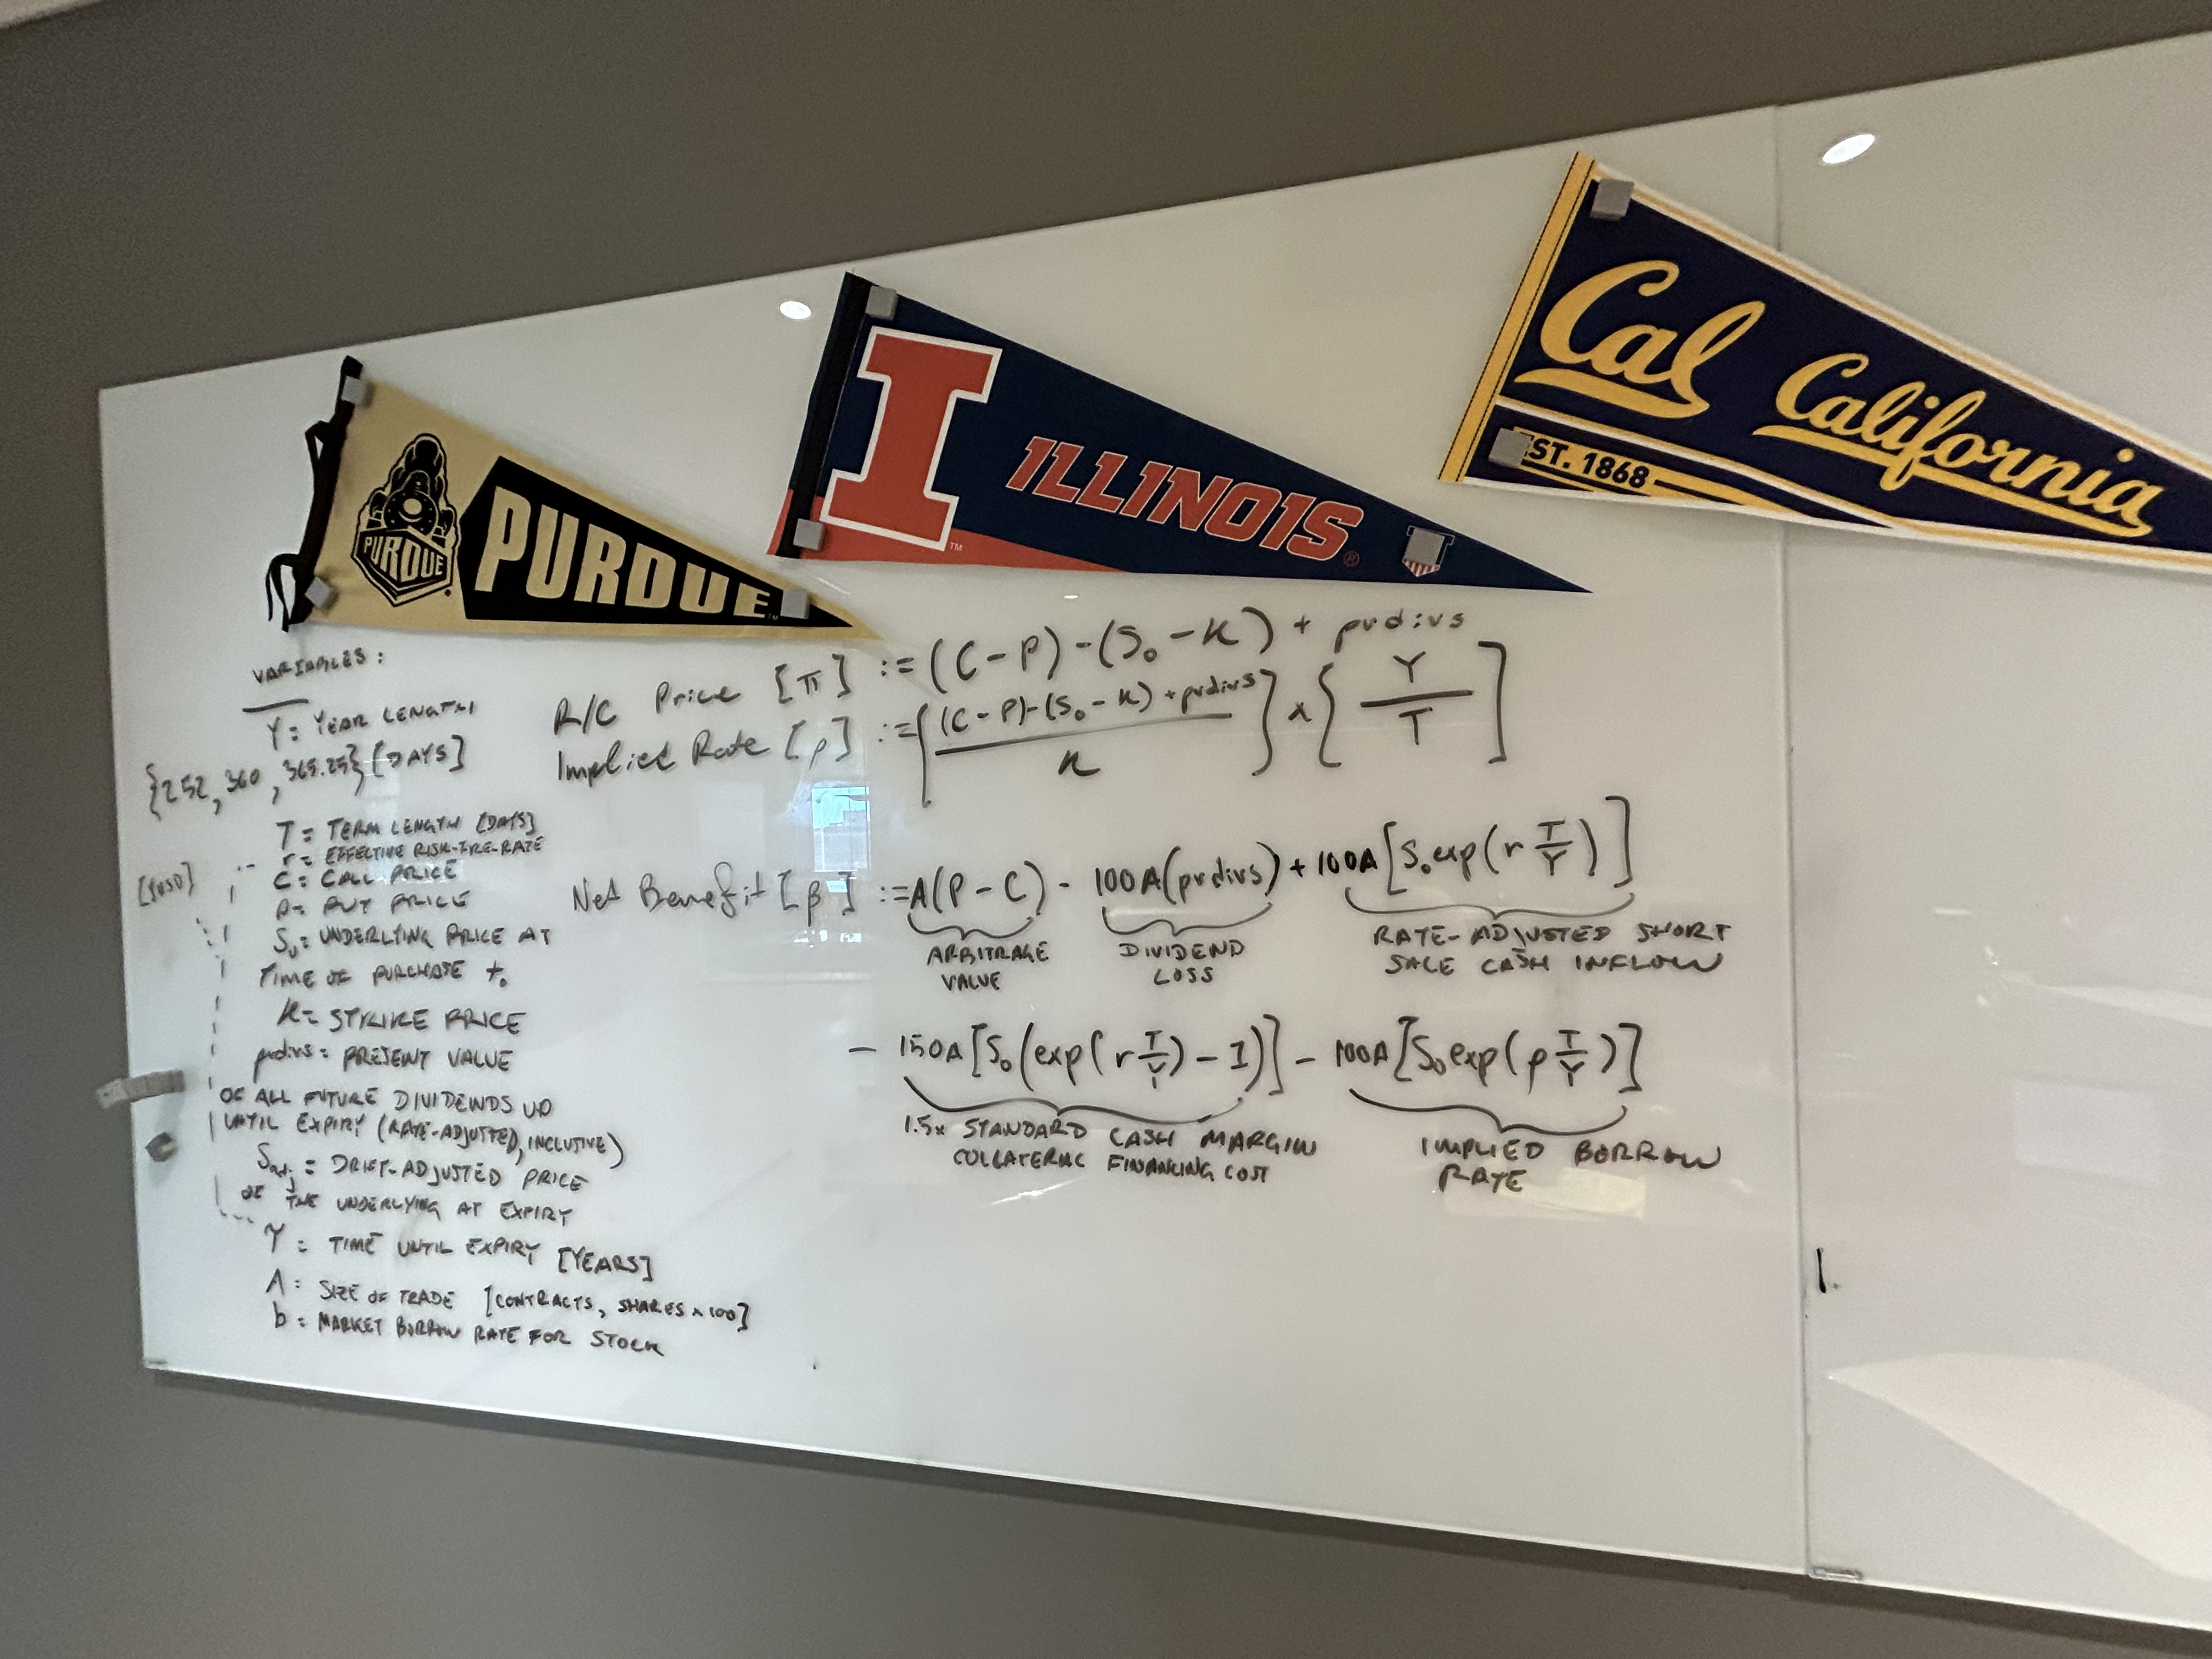 PURDUE
PURDUE
I
TM
ILLINOIS
®
Cal California
EST. 1868
VARIABLES:
Y = YEAR LENGTH
{252, 360, 365.25} [DAYS]
T = TERM LENGTH [DAYS]
r = EFFECTIVE RISK-FRE-RATE
[$USD]
C = CALL PRICE
P = PUT PRICE
S₀ = UNDERLYING PRICE AT
TIME OF PURCHASE t₀
K = STRIKE PRICE
pvdivs = PRESENT VALUE
OF ALL FUTURE DIVIDENDS UP
UNTIL EXPIRY (RATE-ADJUSTED, INCLUSIVE)
S_adj = DRIFT-ADJUSTED PRICE
OF THE UNDERLYING AT EXPIRY
Υ = TIME UNTIL EXPIRY [YEARS]
A = SIZE OF TRADE [CONTRACTS, SHARES × 100]
b = MARKET BORROW RATE FOR STOCK
R/C Price [π] := (C - P) - (S₀ - K) + pvdivs
Implied Rate [ρ] := {((C - P) - (S₀ - K) + pvdivs) / K} × {Y / T]
Net Benefit [β] := A(P - C) - 100A(pvdivs) + 100A[S₀ exp(r T/Y)]
ARBITRAGE VALUE
DIVIDEND LOSS
RATE-ADJUSTED SHORT
SALE CASH INFLOW
- 150A[S₀(exp(r T/Y) - 1)] - 100A[S₀ exp(ρ T/Y)]
1.5x STANDARD CASH MARGIN
COLLATERAL FINANCING COST
IMPLIED BORROW
RATE
1.